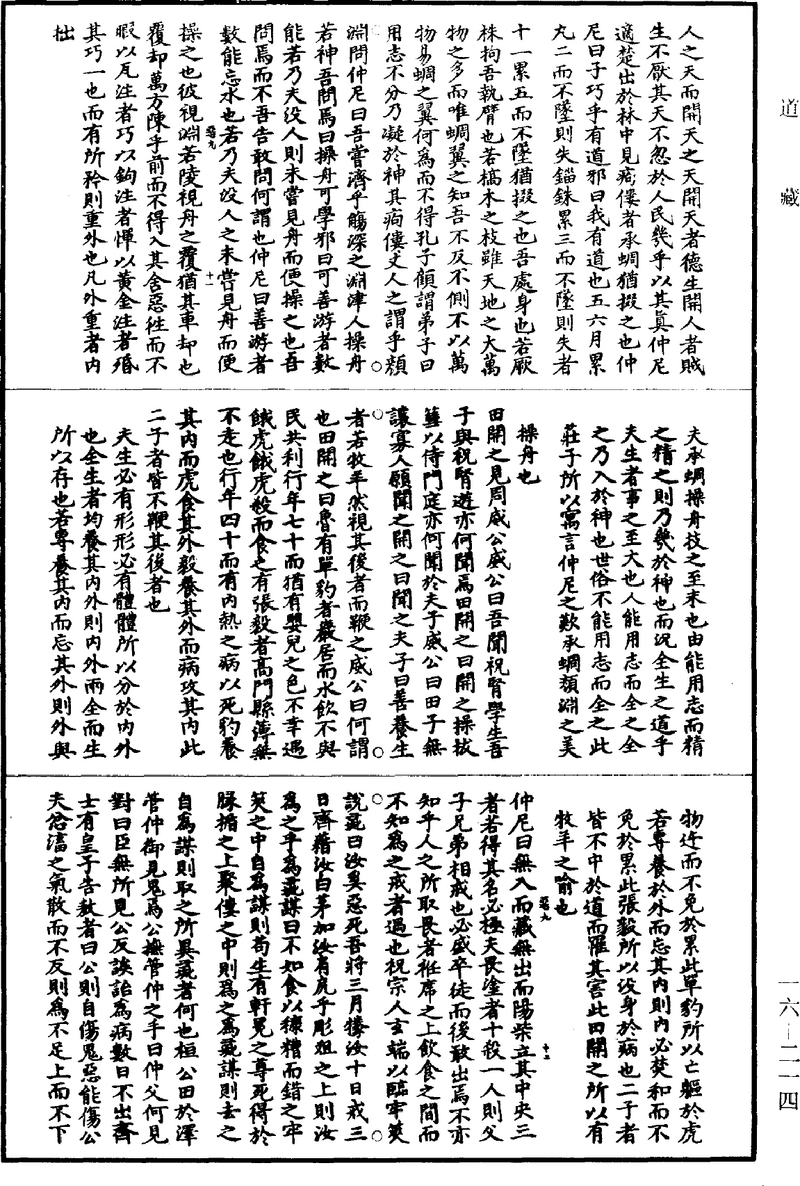 道藏
人之天而開天之天開天者德生開人者賊
生不厭其天不忽於人民幾乎以其真仲尼
適楚出於林中見痀僂者承蜩猶掇之也仲
尼曰子巧乎有道邪曰我有道也五六月累
丸二而不墜則失者錙銖累三而不墜則失者
十一累五而不墜猶掇之也吾處身也若厥
株拘吾執臂也若槁木之枝雖天地之大萬
物之多而唯蜩翼之知吾不反不側不以萬
物易蜩之翼何為而不得孔子顧謂弟子曰
用志不分乃凝於神其痀僂丈人之謂乎顏
淵問仲尼曰吾嘗濟乎觴深之淵津人操舟
若神吾問焉曰操舟可學邪曰可善游者數
能若乃夫沒人則未嘗見舟而便操之也吾
問焉而不吾告敢問何謂也仲尼曰善游者
數能忘水也若乃夫沒人之未嘗見舟而便
操之也彼視淵若陵視舟之覆猶其車却也
覆却萬方陳乎前而不得入其舍惡往而不
暇以瓦注者巧以鉤注者憚以黃金注者殙
其巧一也而有所矜則重外也凡外重者內
拙
夫承蜩操舟技之至末也由能用志而精
之精之則乃幾於神也而況全生之道乎
夫生者事之至大也人能用志而全之全
之乃入於神也世俗不能用志而全之此
莊子所以寓言仲尼之歎承蜩顏淵之美
操舟也
田開之見周威公威公曰吾聞祝腎學生吾
子與祝腎遊亦何聞焉田開之曰開之操拔
篲以侍門庭亦何聞於夫子威公曰田子無
讓寡人願聞之開之曰聞之夫子曰善養生
者若牧羊然視其後者而鞭之威公曰何謂
也田開之曰魯有單豹者巖居而水飲不與
民共利行年七十而猶有嬰兒之色不幸遇
餓虎餓虎殺而食之有張毅者高門縣薄無
不走也行年四十而有內熱之病以死豹養
其內而虎食其外毅養其外而病攻其內此
二子者皆不鞭其後者也
夫生必有形形必有體體所以分於內外
也全生者均養其內外則內外兩全而生
所以存也若專養其內而忘其外則外與
物迕而不免於累此單豹所以亡軀於虎
若專養於外而忘其內則內必焚和而不
免於累此張毅所以沒身於病也二子者
皆不中於道而罹其害此田開之所以有
牧羊之喻也
仲尼曰無入而藏無出而陽柴立其中央三
者若得其名必極夫畏塗者十殺一人則父
子兄弟相戒也必盛卒徒而後敢出焉不亦
知乎人之所取畏者袵席之上飲食之間而
不知為之戒者過也祝宗人玄端以臨牢筴
說彘曰汝奚惡死吾將三月㹖汝十日戒三
日齊藉汝白茅加汝肩尻乎彫俎之上則汝
為之乎為彘謀曰不如食以糠糟而錯之牢
筴之中自為謀則苟生有軒冕之尊死得於
腞楯之上聚僂之中則為之為彘謀則去之
自為謀則取之所異彘者何也桓公田於澤
管仲御見鬼焉公撫管仲之手曰仲父何見
對曰臣無所見公反誒詒為病數日不出齊
士有皇子告敖者曰公則自傷鬼惡能傷公
夫忿滀之氣散而不反則為不足上而不下
一六—二一四